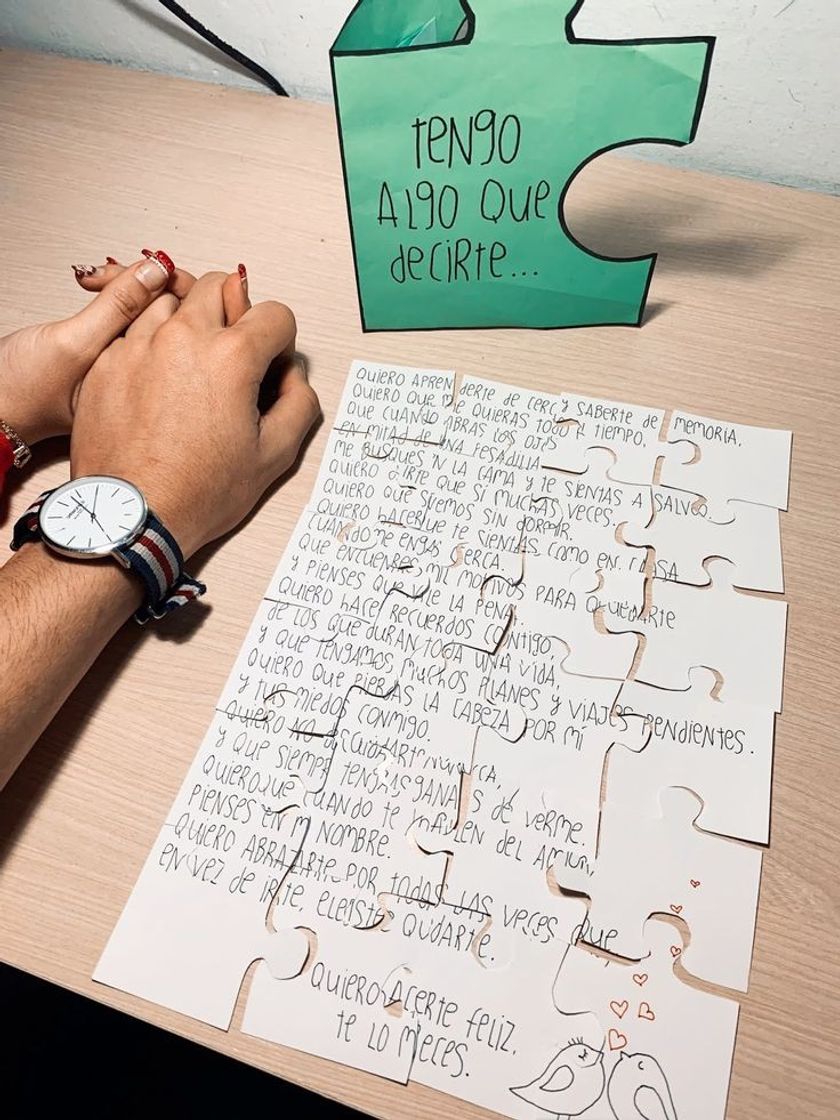 TENGO
ALGO QUE
DECIRTE...
QUIERO APRENDERTE DE CERCA Y SABERTE DE MEMORIA.
QUIERO QUE ME QUIERAS TODO EL TIEMPO,
QUE CUANDO ABRAS LOS OJOS
EN MITAD DE UNA PESADILLA
ME BUSQUES EN LA CAMA Y TE SIENTAS A SALVO.
QUIERO DIRTE QUE SI MUCHAS VECES.
QUIERO QUE SUEMOS SIN DORMIR.
QUIERO HACER QUE TE SIENTAS COMO EN CASA
CUANDO ME TENGAS CERCA.
QUE ENCUENTRES MIL MOTIVOS PARA QUEDARTE
Y PIENSES QUE VALE LA PENA.
QUIERO HACER RECUERDOS CONTIGO,
DE LOS QUE DURAN TODA UNA VIDA,
Y QUE TENGAMOS MUCHOS PLANES Y VIAJES PENDIENTES.
QUIERO QUE PIERDAS LA CABEZA POR MÍ
Y TUS MIEDOS CONMIGO.
QUIERO NO DESCUIDARTE NUNCA,
Y QUE SIEMPRE TENGAS GANAS DE VERME.
QUIERO QUE CUANDO TE HABLEN DEL AMOR,
PIENSES EN MI NOMBRE.
QUIERO ABRAZARTE POR TODAS LAS VECES QUE,
EN VEZ DE IRTE, ELEGISTE QUDARTE.
QUIERO ACERTE FELIZ.
TE LO MERECES.